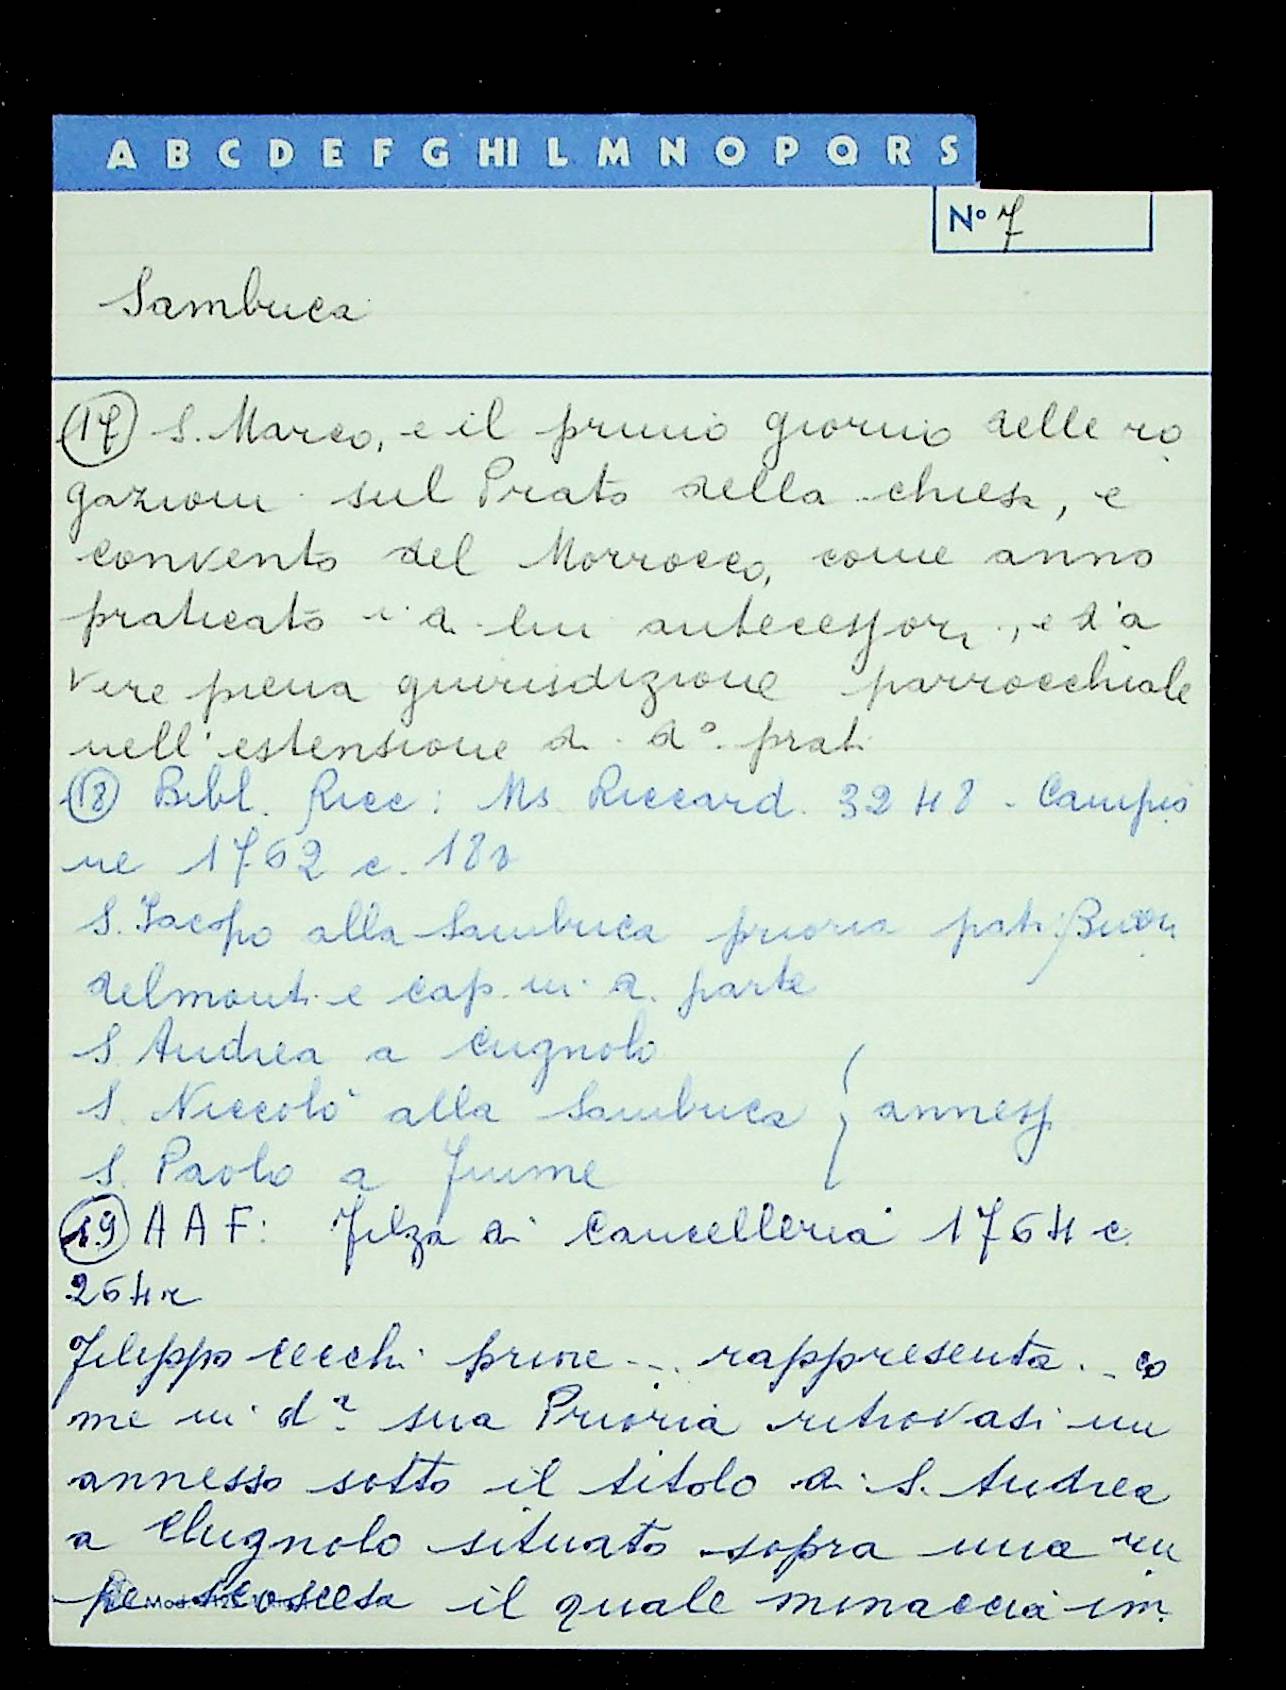 A B C D E F G HI L M N O P Q R S
N° 7
Sambuca
(17) S. Marco, e il primo giorno delle ro
gazioni sul Prato della chiesa, e
convento del Morrocco, come anno
praticato i di lui antecessori, e d'a
vere piena giurisdizione parrocchiale
nell'estensione di d°. prati
(18) Bibl. Ricc: Ms Riccard. 3248 - Campio
ne 1762 c. 18v
S. Iacopo alla Sambuca prioria pati: Buon
delmonti e cap. ni di parte
S. Andrea a Cugnolo
S. Niccolò alla Sambuca } annessi
S. Paolo a Fiume
(19) AAF: Filza di Cancelleria 1764 c.
264r
Filippo Cecchi priore ... rappresenta .. co
me in dª sua Prioria ritrovasi un
annesso sotto il titolo di S. Andrea
a Cugnolo situato sopra una ru
pe scoscesa il quale minaccia im
Mod.